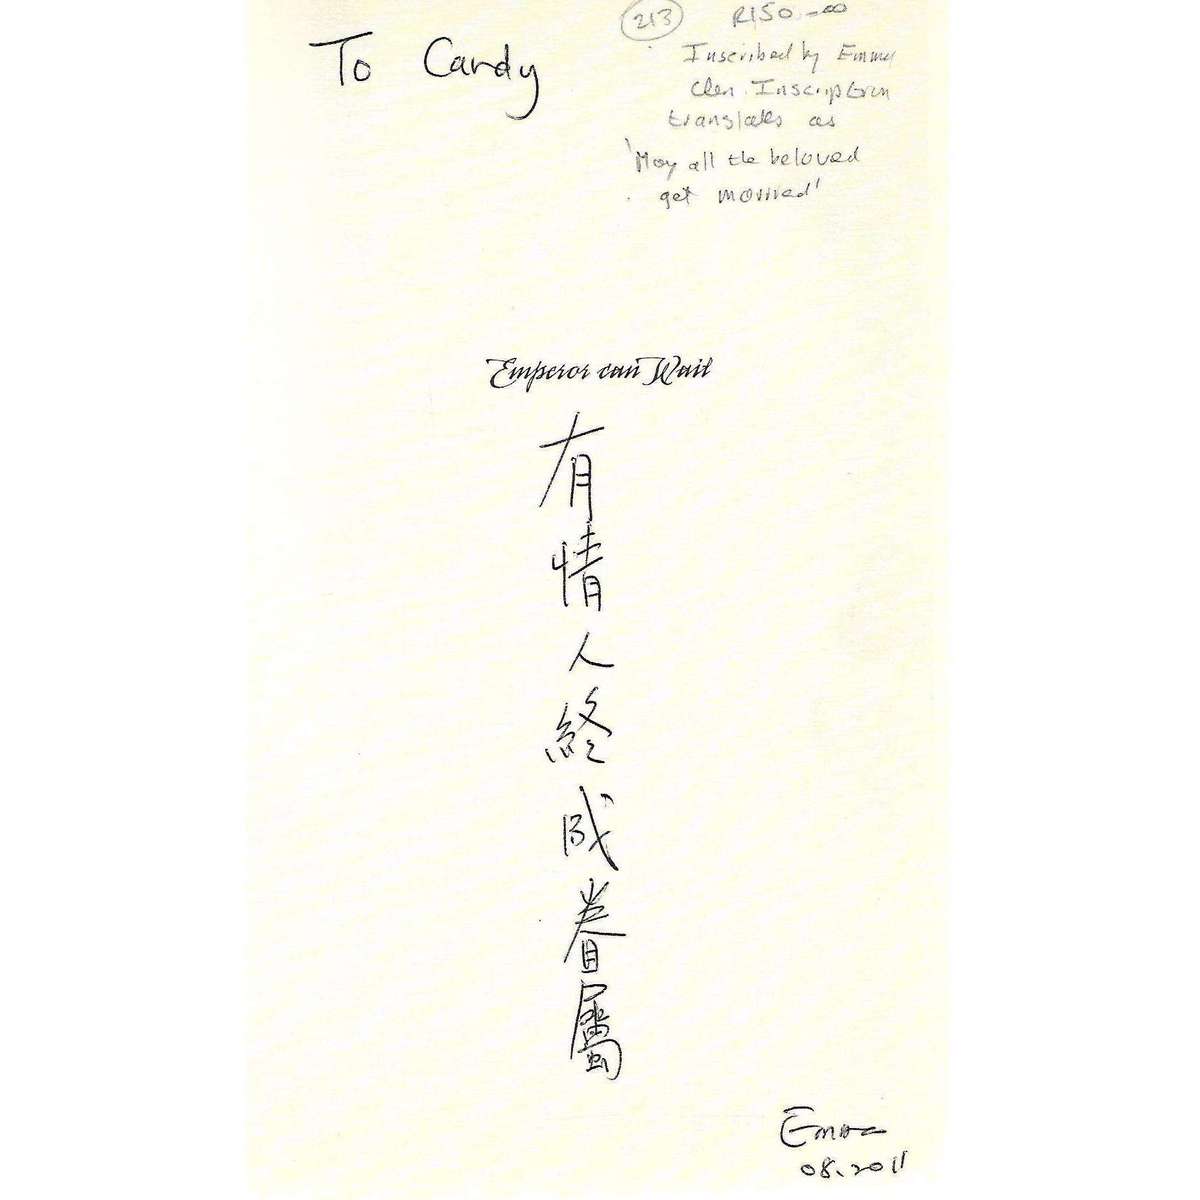 213 R150.-00
To Candy
Inscribed by Emma
Chen. Inscription
translates as
'May all the beloved
get married'
Emperor can Wait
有情人終成眷屬
Emma
08.2011